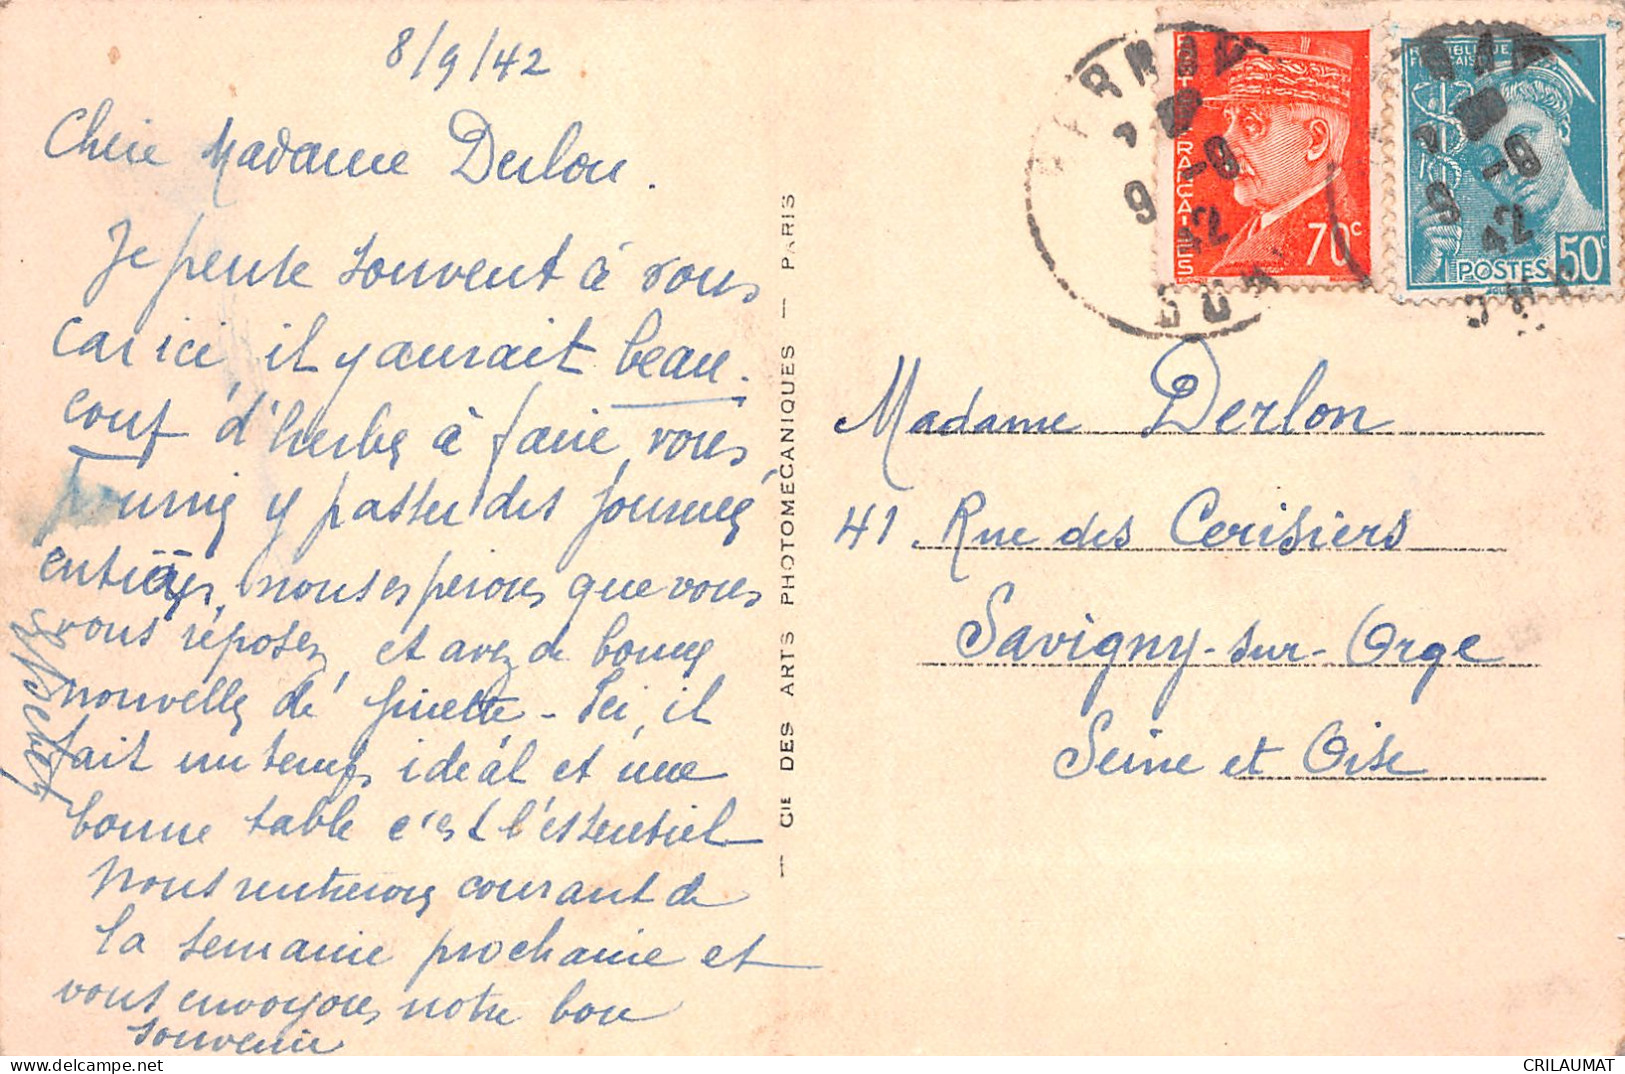 8/9/42
Chère Madame Derlon.
Je pense souvent à vous
car ici, il y aurait beau-
coup d'herbe à faire, vous
pourriez y passer des journées
entières, nous espérons que vous
vous reposez, et avez de bonnes
nouvelles de Ginette - Ici, il
fait un temps idéal et une
bonne table c'est l'essentiel
Nous rentrerons courant de
la semaine prochaine et
vous envoyons notre bon
souvenir
CIE DES ARTS PHOTOMÉCANIQUES — PARIS
POSTES FRANÇAISES
70c
RÉPUBLIQUE
FRANÇAISE
POSTES 50c
9 -9
42
9 -9
42
Madame Derlon
41 Rue des Cerisiers
Savigny-sur-Orge
Seine et Oise
CRILAUMAT